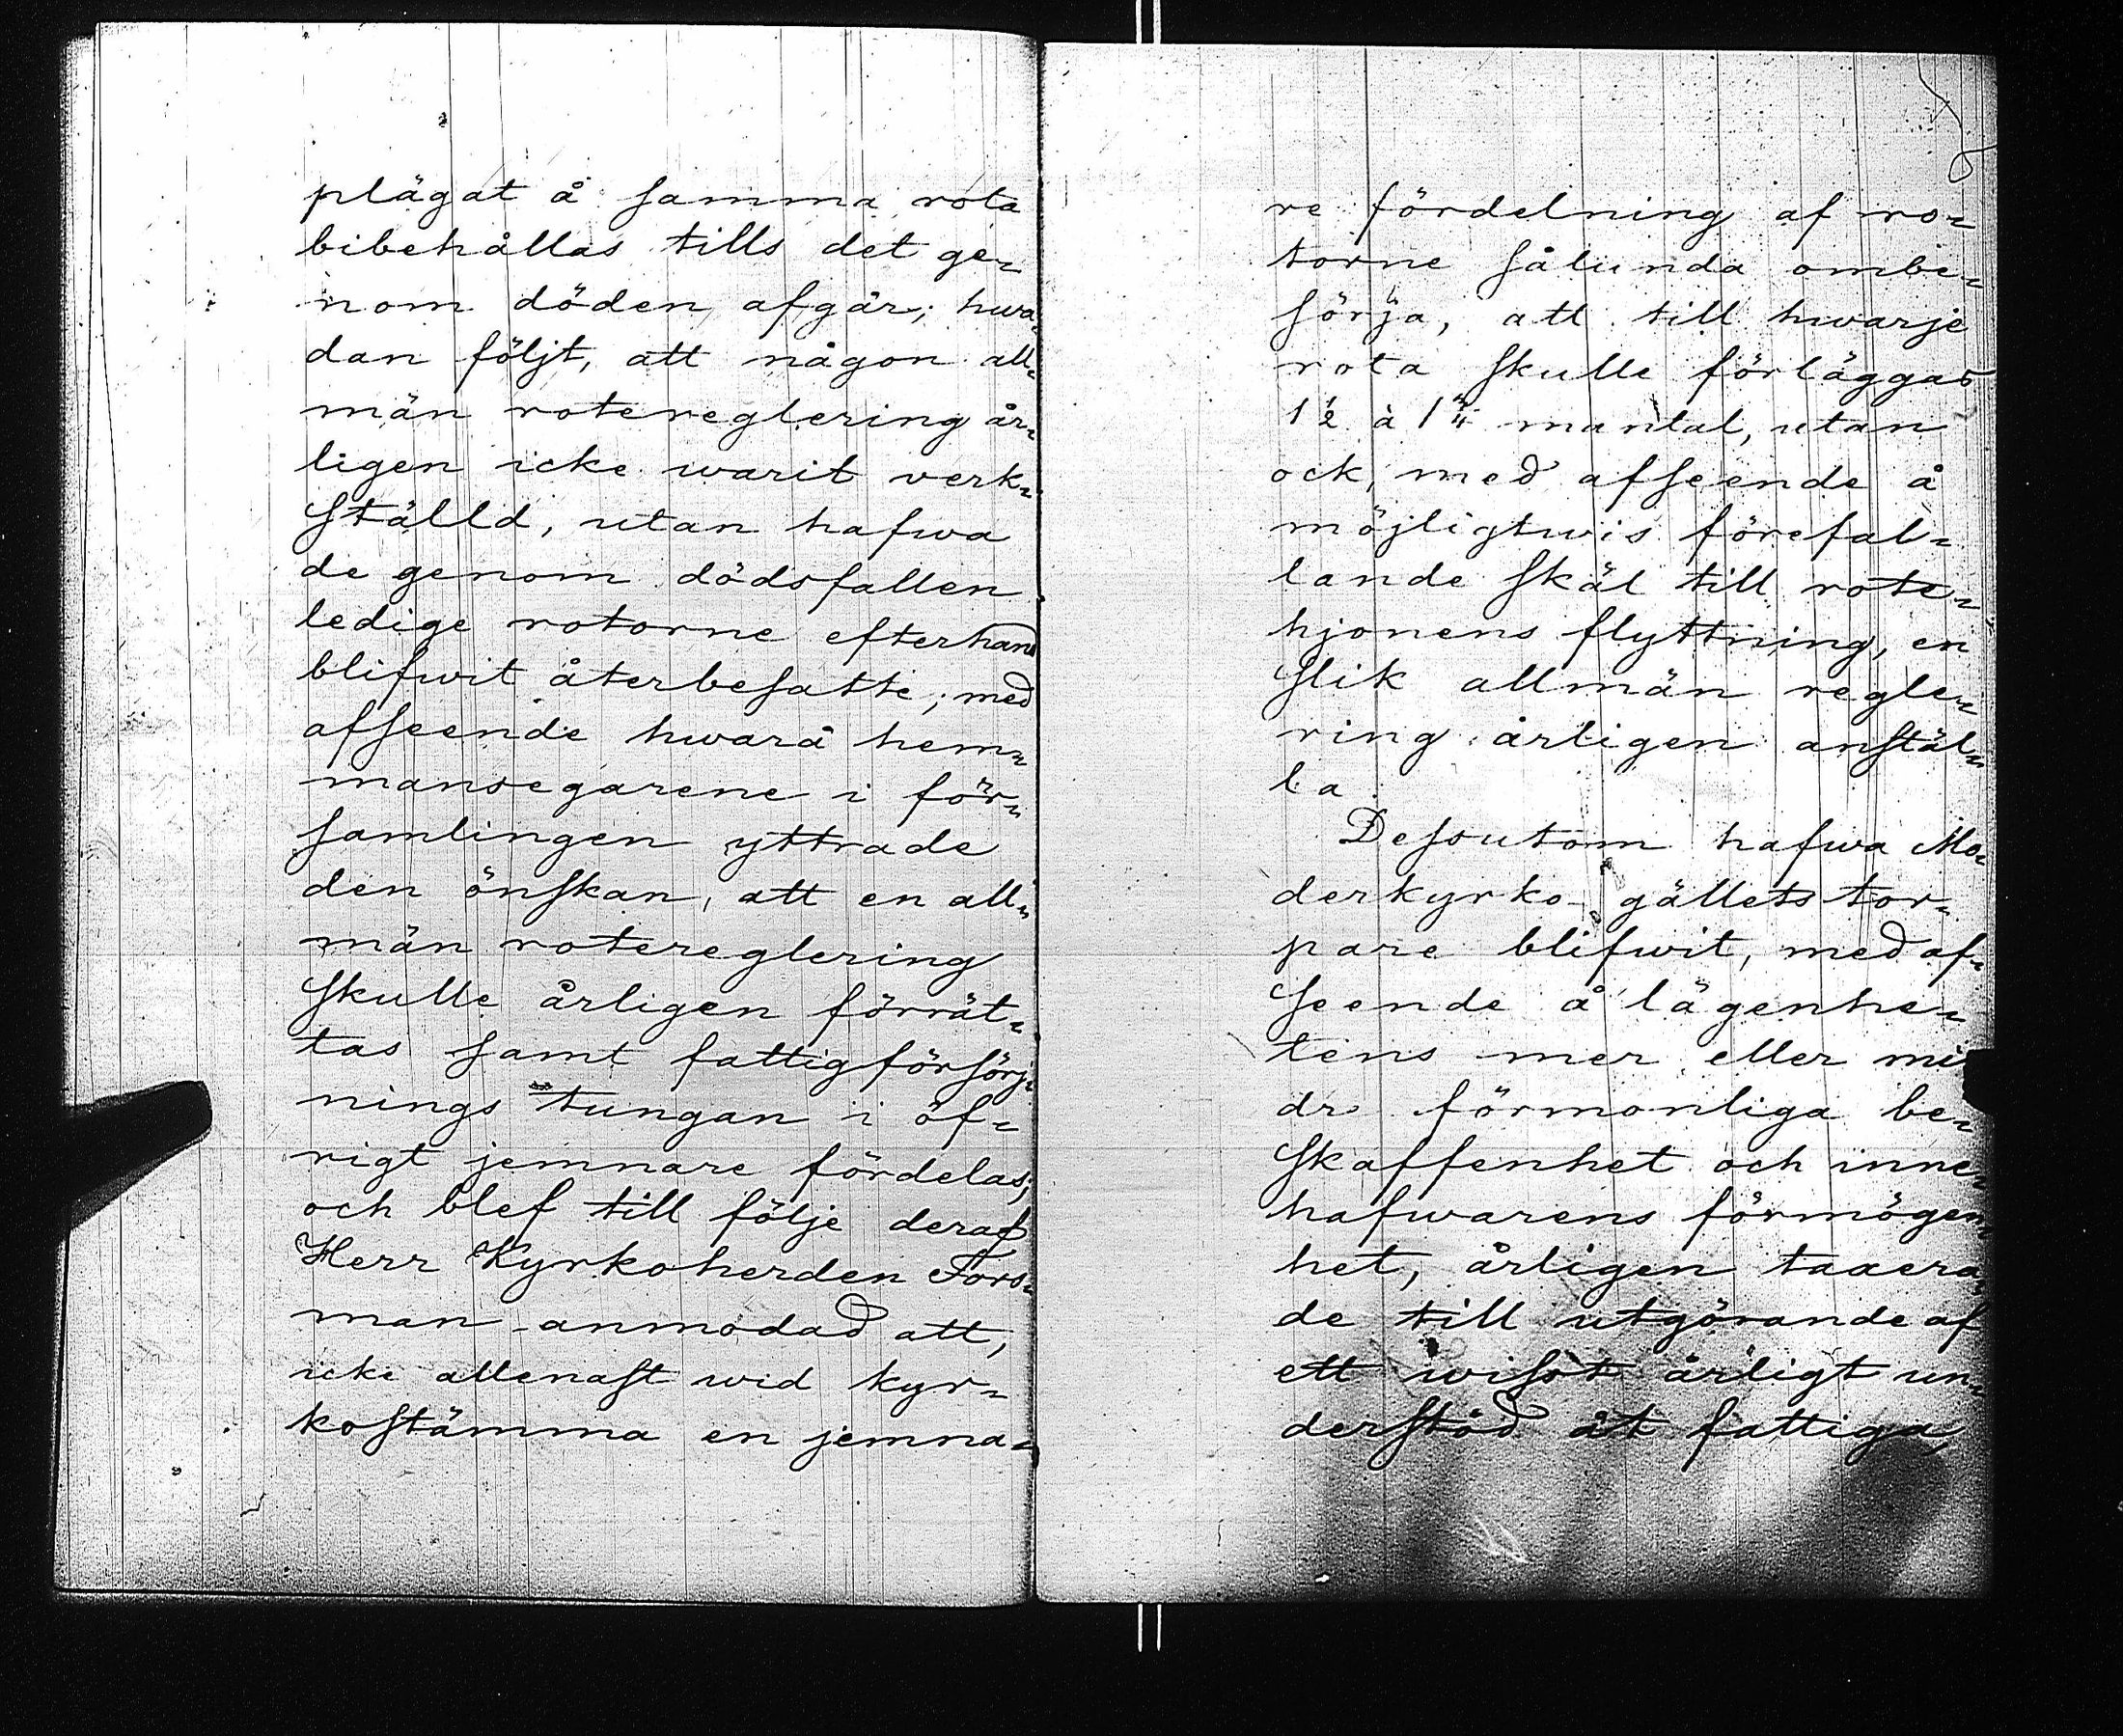 plägat å samma rota
bibehållas tills det ge-
nom döden afgår; hwa-
dan följt, att någon all-
män rotereglering år-
ligen icke warit verk-
ställd, utan hafwa
de genom dödsfallen
ledige rotorne efterhand
blifwit återbesatte; med
afseende hwarå hem-
mansegarene i för-
samlingen yttrade
den önskan, att en all-
män rotereglering
skulle årligen förrät-
tas samt fattigförsörj-
nings tungan i öf-
rigt jemnare fördelas;
och blef till följe deraf
Herr Kyrkoherden Fors-
man anmodad att,
icke allenast wid kyr-
kostämma en jemna-
re fördelning af ro-
torne sålunda ombe-
sörja, att till hwarje
rota skulle förläggas
1 1/2 à 1 3/4 mantal, utan
ock, med afseende å
möjligtwis förefal-
lande skäl till rote-
hjonens flyttning, en
slik allmän regle-
ring årligen anstäl-
la.
Dessutom hafwa Mo-
derkyrko gällets tor-
pare blifwit, med af-
seende å lägenhe-
tens mer eller min-
dr förmonliga be-
skaffenhet och inne-
hafwarens förmögen-
het, årligen taxera-
de till utgörande af
ett wisst årligt un-
derstöd åt fattiga,